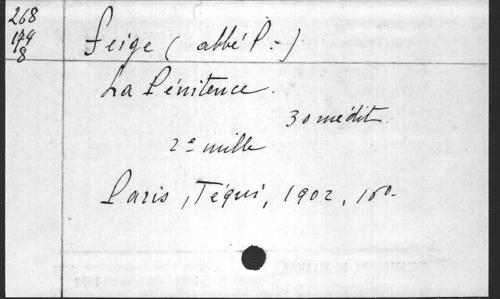 268
174
8
Feige (abbé P.-)
La Pénitence.
30 médit.
2e mille
Paris, Téqui, 1902, 16o-